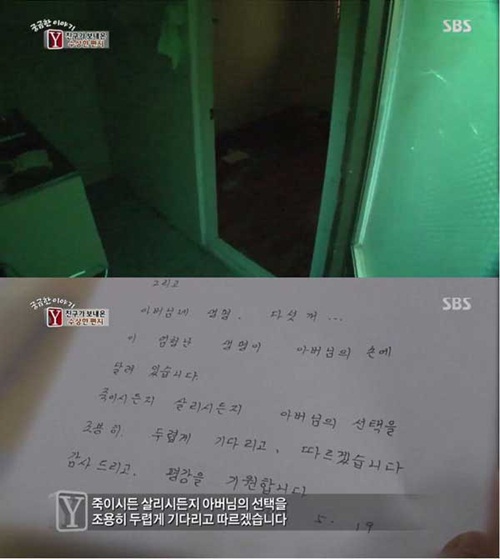 궁금한 이야기
Y
친구가 보내온
수상한 편지
SBS
궁금한 이야기
Y
친구가 보내온
수상한 편지
SBS
그리고
아버님네 생명, 다섯 개...
이 엄청난 생명이 아버님의 손에
달려 있습니다.
죽이시든지 살리시든지 아버님의 선택을
조용히. 두렵게 기다리고, 따르겠습니다
감사드리고, 평강을 기원합니다
Y
죽이시든 살리시든지 아버님의 선택을
조용히 두렵게 기다리고 따르겠습니다
5. 19